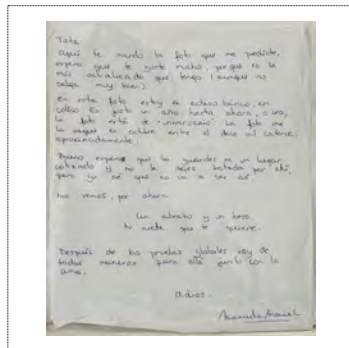 Tata
aquí te mando la foto que me pediste,
espero que te guste mucho, porque es la
más actualizada que tengo (aunque no
salga muy bien).
En esta foto estoy en octavo básico, en
un año hasta ahora, o sea,
la foto está de "aniversario". La foto me
la saqué en octubre entre el doce al catorce,
aproximadamente.
Bueno espero que la guardes en un lugar
y no la dejes botada por ahí,
pero yo sé que no va a ser así.
Nos vemos, por ahora
Un abrazo y un beso.
tu nieta que te quiere.
Después de las pruebas globales voy de
todas maneras para allá junto con la
adios.